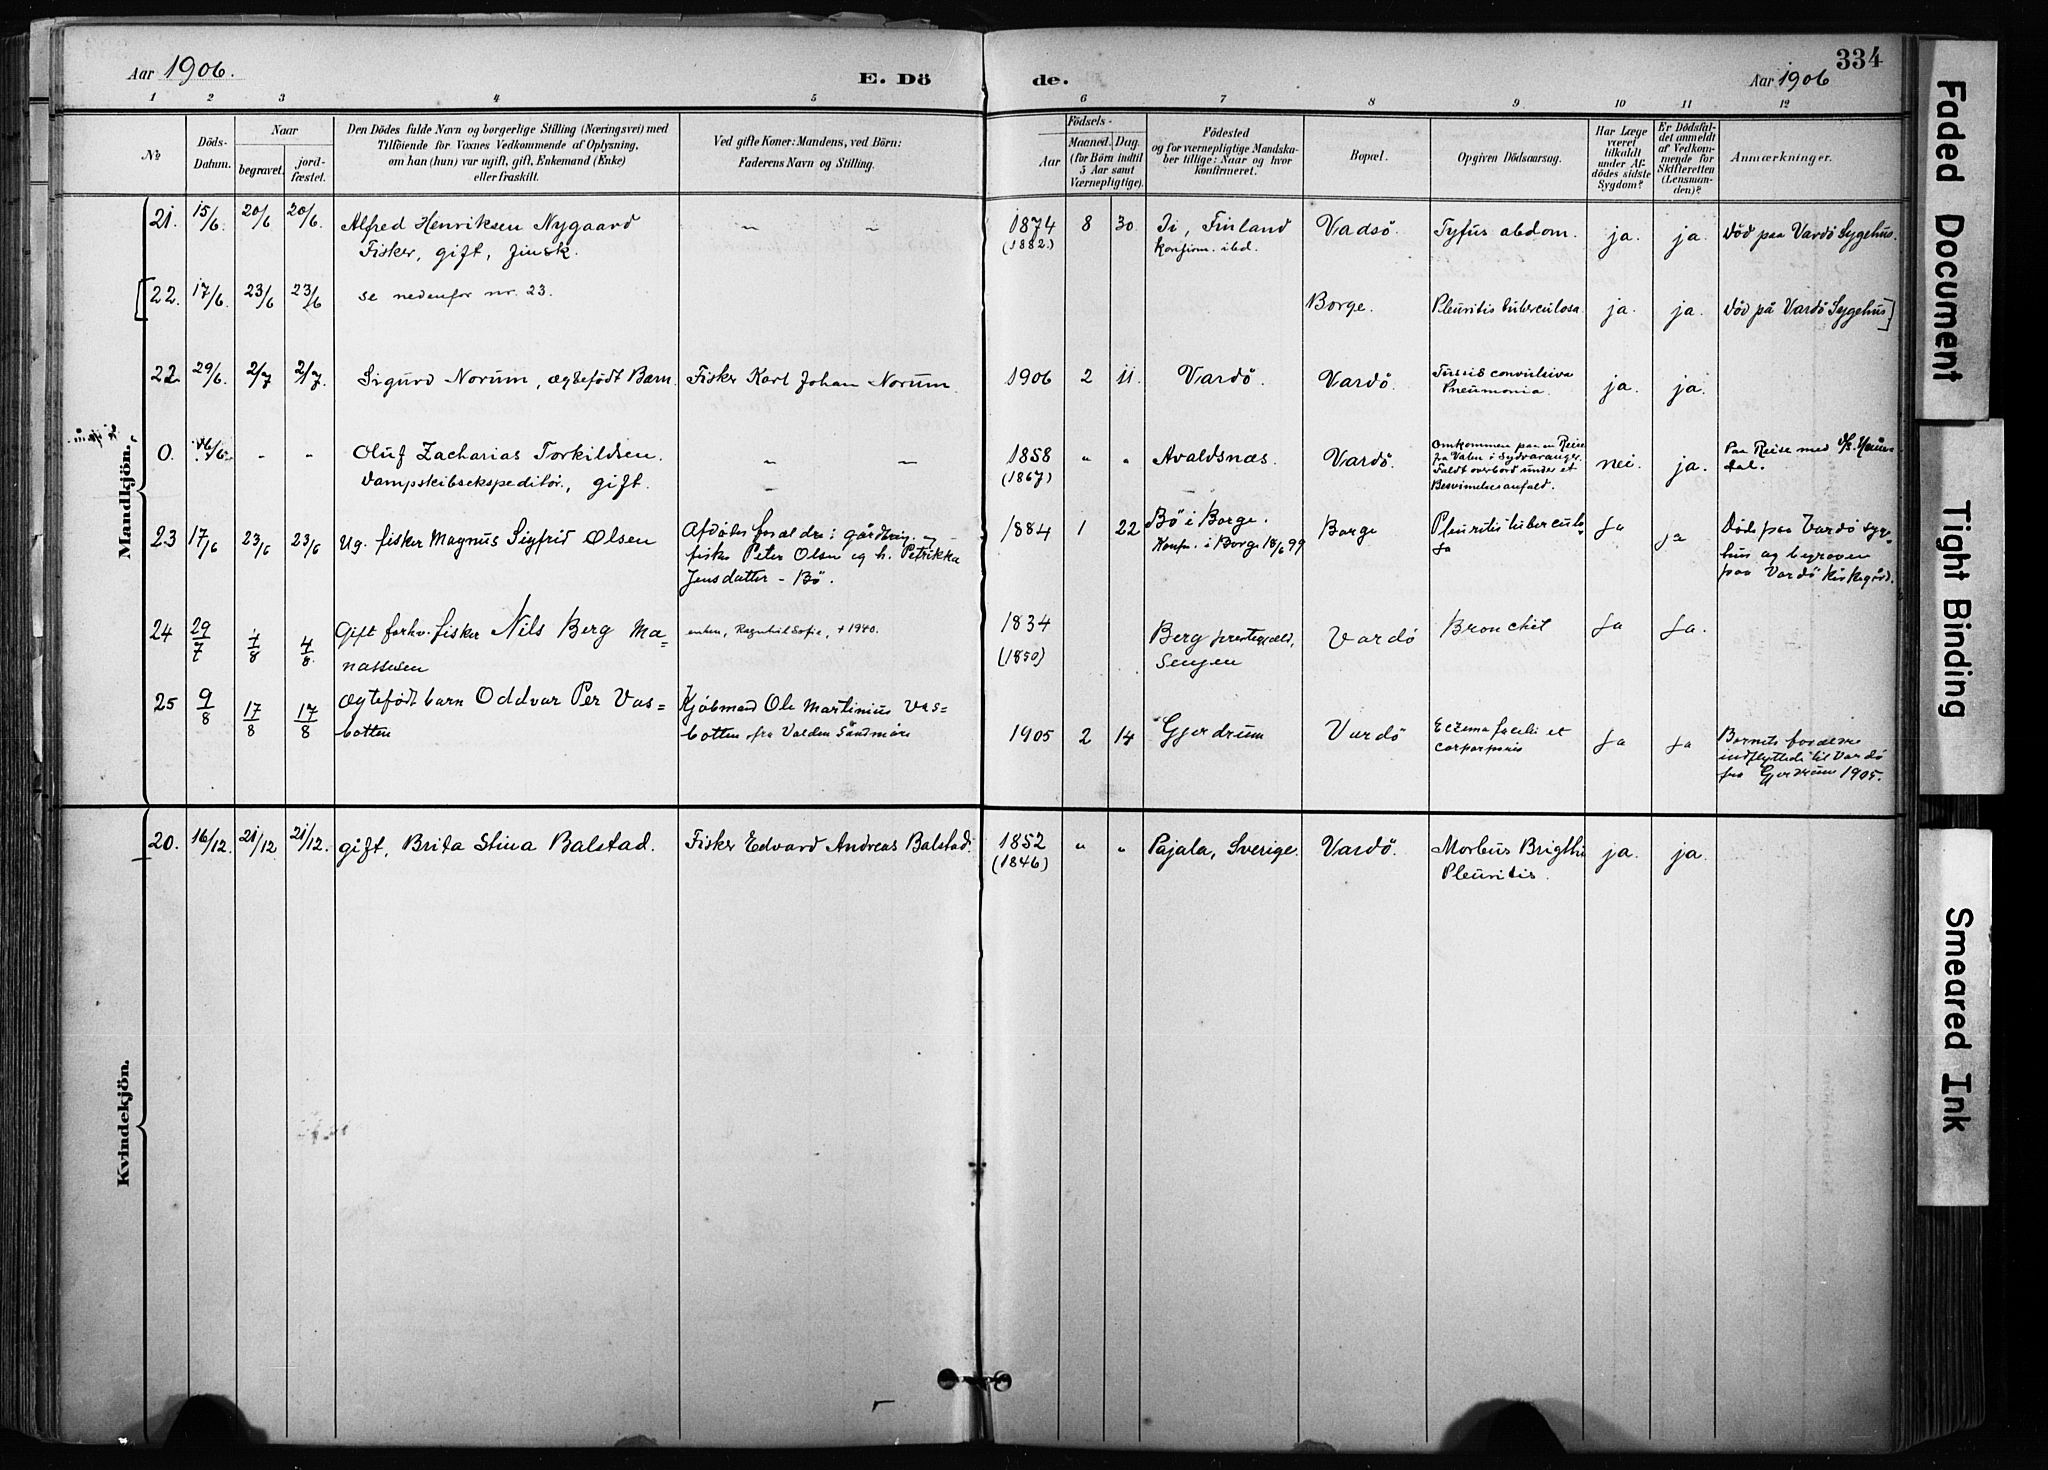 Aar 1906.
E. Dö
de.
334
Aar 1906
1 2 3 4 5 6 7 8 9 10 11 12
No
Döds-
Datum.
Naar
begravet.
jord-
fæstet.
Den Dödes fulde Navn og borgerlige Stilling (Næringsvei) med
Tilföiende for Voxnes Vedkommende af Oplysning,
om han (hun) var ugift, gift, Enkemand (Enke)
eller fraskilt.
Ved gifte Koner: Mandens, ved Börn:
Faderens Navn og Stilling.
Födsels-
Aar
Maaned. Dag.
(for Börn indtil
5 Aar samt
Værnepligtige).
Födested
og for værnepligtige Mandska-
ber tillige: Naar og hvor
konfirmeret.
Bopæl.
Opgiven Dödsaarsag.
Har Læge
været
tilkaldt
under Af-
dödes sidste
Sygdom?
Er Dödsfal-
det anmeldt
af Vedkom-
mende for
Skifteretten
(Lensman-
den)?
Anmærkninger.
Mandkjön.
21. 15/6. 20/6 20/6. Alfred Henriksen Nygaard
Fisker, gift, finsk.
1874 8 30.
(1882)
Ii, Finland
Konfirm. ibd.
Vadsö. Tyfus abdom. ja. ja. Död paa Vardö Sygehus.
[22. 17/6. 23/6 23/6 se nedenfor nr. 23.
Borge. Pleuritis tuberculosa. ja. ja. Död på Vardö Sygehus]
22 29/6. 2/7 2/7. Sigurd Norum, ægtefödt Barn. Fisker Karl Johan Norum.
1906 2 11. Vardö. Vardö. Tussis convulsiva
Pneumonia.
ja. ja.
0. - - Oluf Zacharias Torkildsen.
Dampskibsekspeditör, gift.
1858 " "
(1867)
Avaldsnæs. Vardö.
Omkommen paa en Reise
fra Valen i Sydvaranger.
Faldt overbord under et
Besvimelsesanfald.
nei. ja.
Paa Reise med
23 17/6 23/6 23/6 Ug. fisker Magnus Sigfrid Olsen
Afdödes foraeldre: gårdbrug. og
fisker Peter Olsen og h. Petrikka
Jensdatter - Bö.
1884 1 22 Bö i Borge.
Konfn. i Borge 18/6 99
Borge Pleuritis tuberculo-
sa
Ja Ja
Döde paa Vardö syge-
hus og begraven
paa Vardö kirkegård.
24 29/7 4/8 4/8. Gift forhv. fisker Nils Berg Ma=
nassesen
enken, Ragnhild Sofie, + 1940.
1834
(1850)
Berg prestegjæld,
Senjen
Vardö Bronchit Ja Ja.
25 9/8 17/8 17/8 Ægtefödt barn Oddvar Per Vas=
botten
Kjöbmand Ole Martinius Vas=
botten fra Valden Söndmöre
1905 2 14 Gjerdrum Vardö Eczema faciei et
corporis
Ja Ja
Barnets foraeldre
indflyttede til Vardö
fra Gjerdrum 1905.
Kvindekjön.
20. 16/12. 21/12. 21/12. gift, Brita Stina Balstad. Fisker Edvard Andreas Balstad.
1852 " "
(1846)
Pajala, Sverige. Vardö. Morbus Brigthi
Pleuritis.
ja. ja.
Faded Document
Tight Binding
Smeared Ink